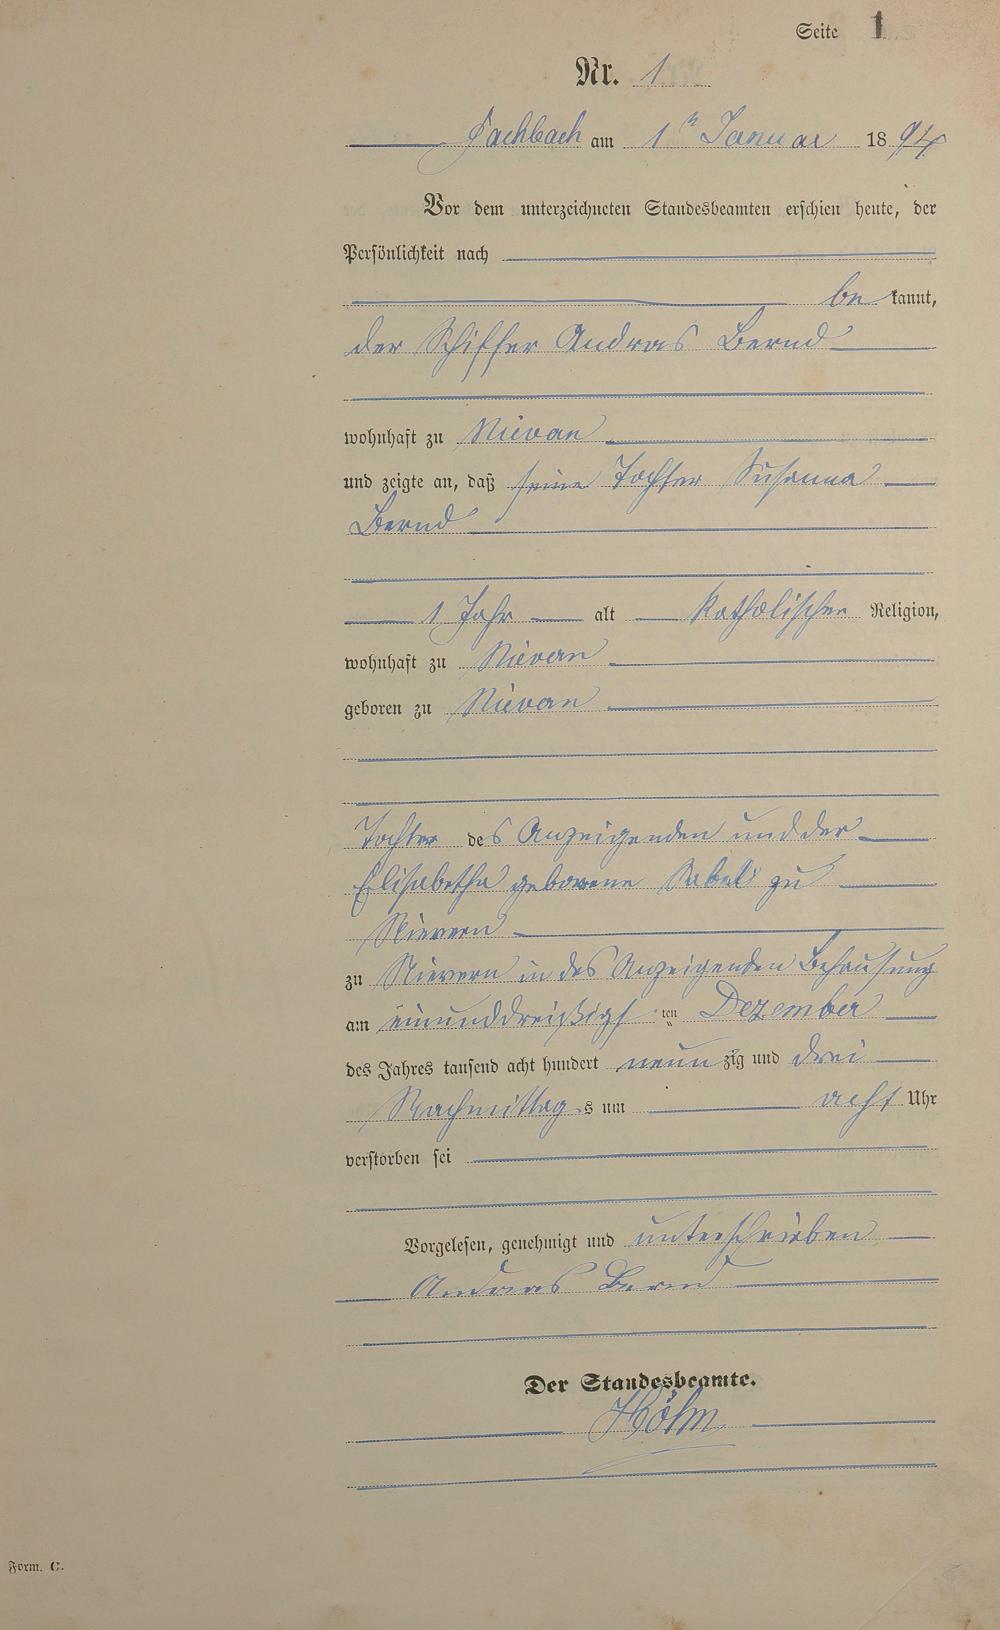 Seite 1
Nr. 1
Fachbach am 1ten Januar 1894
Vor dem unterzeichneten Standesbeamten erschien heute, der
Persönlichkeit nach
be kannt,
der Schiffer Andras Bernd
wohnhaft zu Nievern
und zeigte an, daß seine Tochter Susanna
Bernd
1 Jahr alt katholischer Religion,
wohnhaft zu Nievern
geboren zu Nievern
Tochter des Anzeigenden und der
Elisabetha geborene Sabel zu
Nievern
zu Nievern in des Anzeigenden Behausung
am einunddreißigsten Dezember
des Jahres tausend acht hundert neunzig und drei
Nachmittags um acht Uhr
verstorben sei
Vorgelesen, genehmigt und unterschrieben
Andras Bernd
Der Standesbeamte.
Form. C.